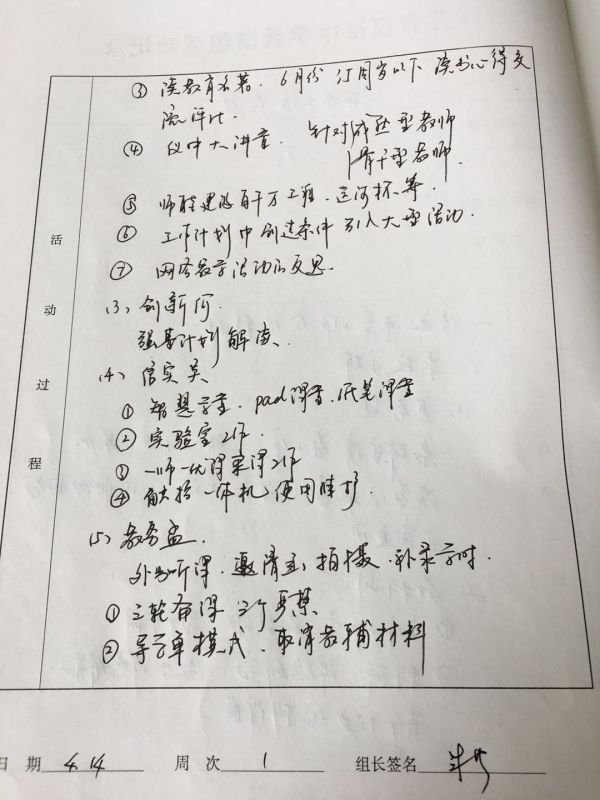 ③ 读教育名著. 6月份 35周岁以下 读书心得交
流评比.
④ 仪中大讲堂. 针对成熟型教师
骨干型教师.
⑤ 师程建设百千万工程. 运河杯等.
⑥ 工作计划中创造条件 引入大型活动.
⑦ 网络教学活动的反思.
(3) 创新
强基计划解读.
(4) 信实
① 智慧学堂. pad课堂. 纸笔课堂
② 实验室工作.
③ 一师一优课 工作
④ 一体机使用维护.
(5) 教务
外出听课. 邀请 拍摄. 补录学时.
① 三轮备课
② 导学单模式. 取消教辅材料
活动过程
日 期 4.14 周 次 1 组长签名